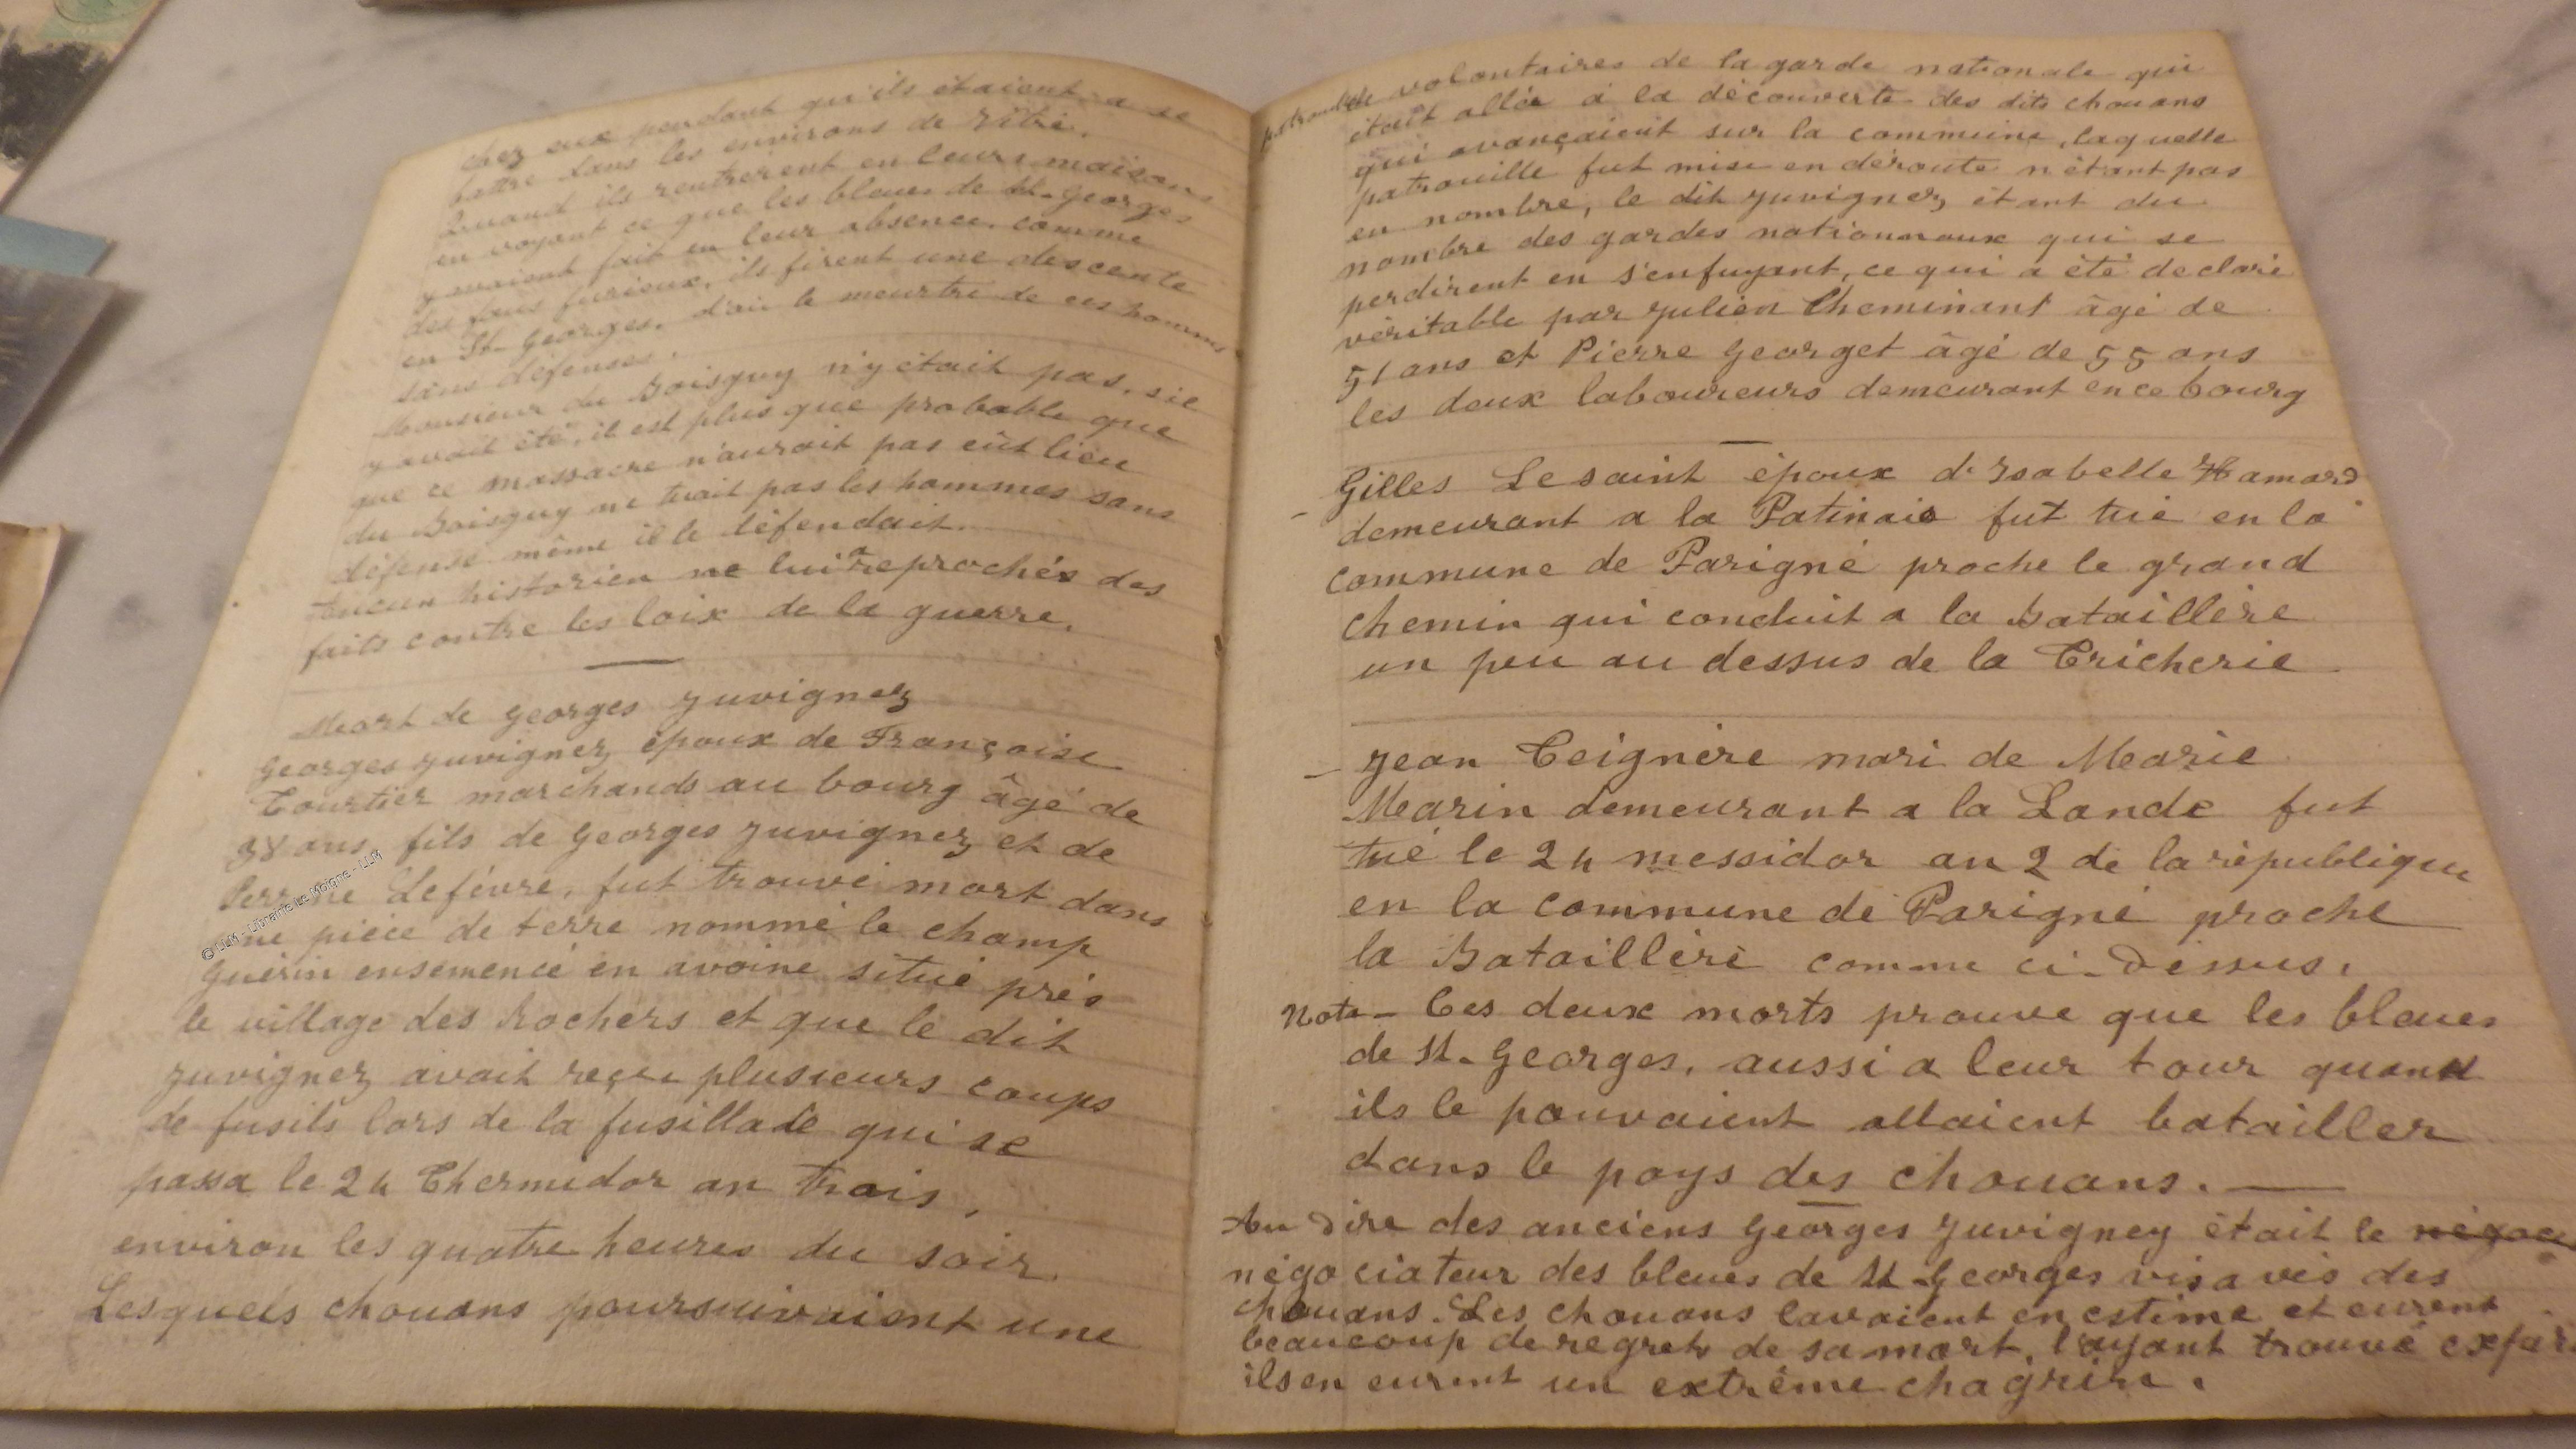 chez eux pendant qu'ils étaient a se
battre dans les environs de Vitré.
Quand ils rentrèrent en leurs maisons
en voyant ce que les bleues de St-Georges
y avaient fait en leur absence, comme
des fous furieux, ils firent une descente
en St-Georges, d'où le meurtre de ces hommes
sans défenses.
Monsieur du Boisguy n'y était pas, s'il
y avait été, il est plus que probable que
que ce massacre n'aurait pas eût lieu
du Boisguy ne tuait pas les hommes sans
défense même il le défendait.
Aucun historien ne lui a reprochés des
faits contre les loix de la guerre.
Mort de Georges Juvignez
Georges Juvignez époux de Françoise
Tourtier marchands au bourg âgé de
ans, fils de Georges Juvignez et de
Perrine Lefèvre, fut trouvé mort dans
une pièce de terre nommé le champ
Guérin ensemencé en avoine situé près
le village des Rochers et que le dit
Juvignez avait reçu plusieurs coups
de fusils lors de la fusillade qui se
passa le 24 Thermidor an trois,
environ les quatre heures du soir
Lesquels chouans poursuivaient une
patrouille de volontaires de la garde nationale qui
était allée à la découverte des dits chouans
qui avançaient sur la commune, laquelle
patrouille fut mise en déroute n'étant pas
en nombre, le dit Juvignez étant du
nombre des gardes nationnaux qui se
perdirent en s'enfuyant, ce qui a été déclaré
véritable par Julien Cheminant âgé de
51 ans et Pierre Georget âgé de 55 ans
les deux laboureurs demeurant en ce bourg
- Gilles Lesaint époux d'Isabelle Hamard
demeurant a la Patinais fut tué en la
commune de Parigné proche le grand
chemin qui conduit a la Bataillère
un peu au dessus de la Tricherie
- Jean Teignère mari de Marie
Marin demeurant a la Lande fut
tué le 24 messidor an 2 de la république
en la commune de Parigné proche
la Bataillère comme ci-dessus.
Nota - Ces deux morts prouve que les bleues
de St-Georges, aussi a leur tour quand
ils le pouvaient allaient batailler
dans le pays des chouans.
Au dire des anciens Georges Juvigney était le négoci
négociateur des bleues de St-Georges vis a vis des
chouans. Les chouans lavaient en estime et eurent
beaucoup de regrets de sa mort, l'ayant trouvé
ils en eurent un extrême chagrin.
© LLM - Librairie Le Moigne - LLM